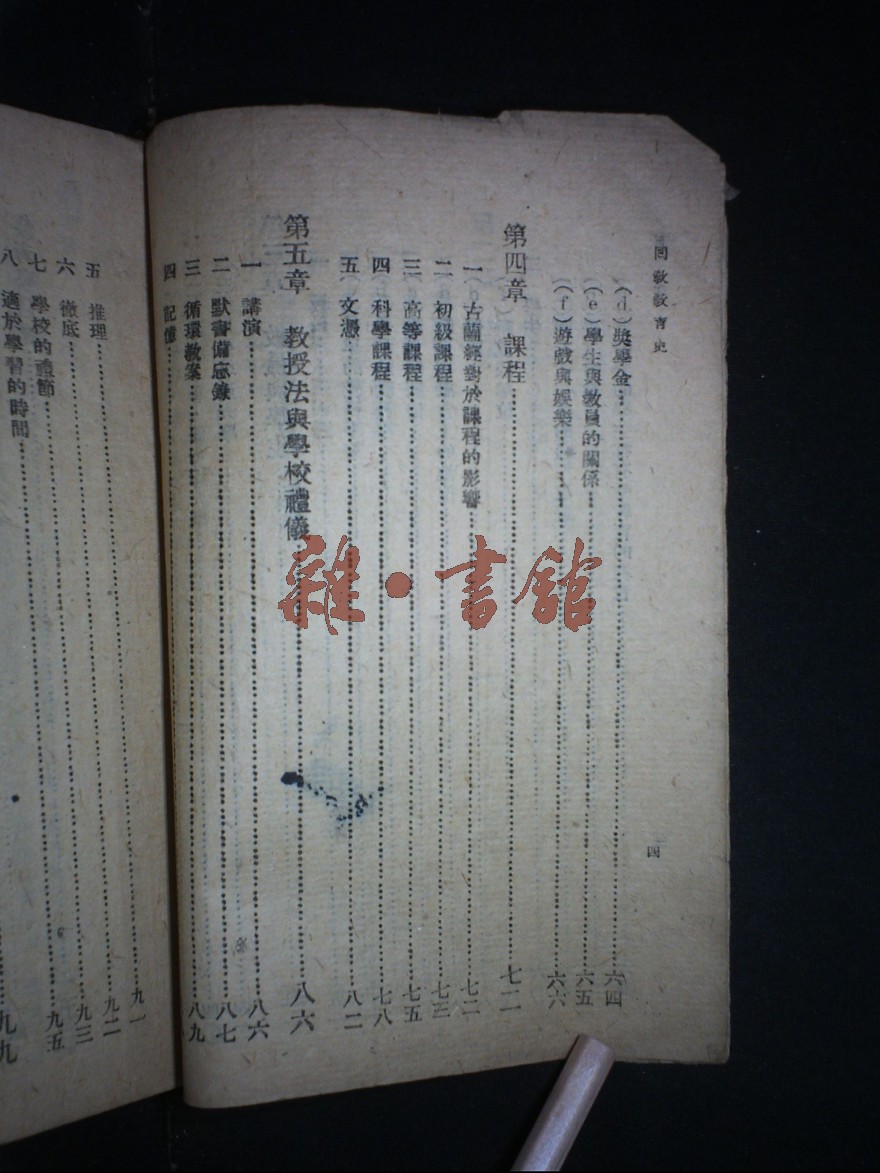 回教教育史
四
(d)獎學金……六四
(e)學生與教員的關係……六五
(f)遊戲與娛樂……六六
第四章 課程……七二
一 古蘭經對於課程的影響……七二
二 初級課程……七三
三 高等課程……七五
四 科學課程……七八
五 文憑……八二
第五章 教授法與學校禮儀……八六
一 講演……八六
二 默書備忘錄……八七
三 循環教案……八九
四 記憶
五 推理……九一
六 徹底……九二
七 學校的禮節……九三
八 適於學習的時間……九五
九九
雜·書館